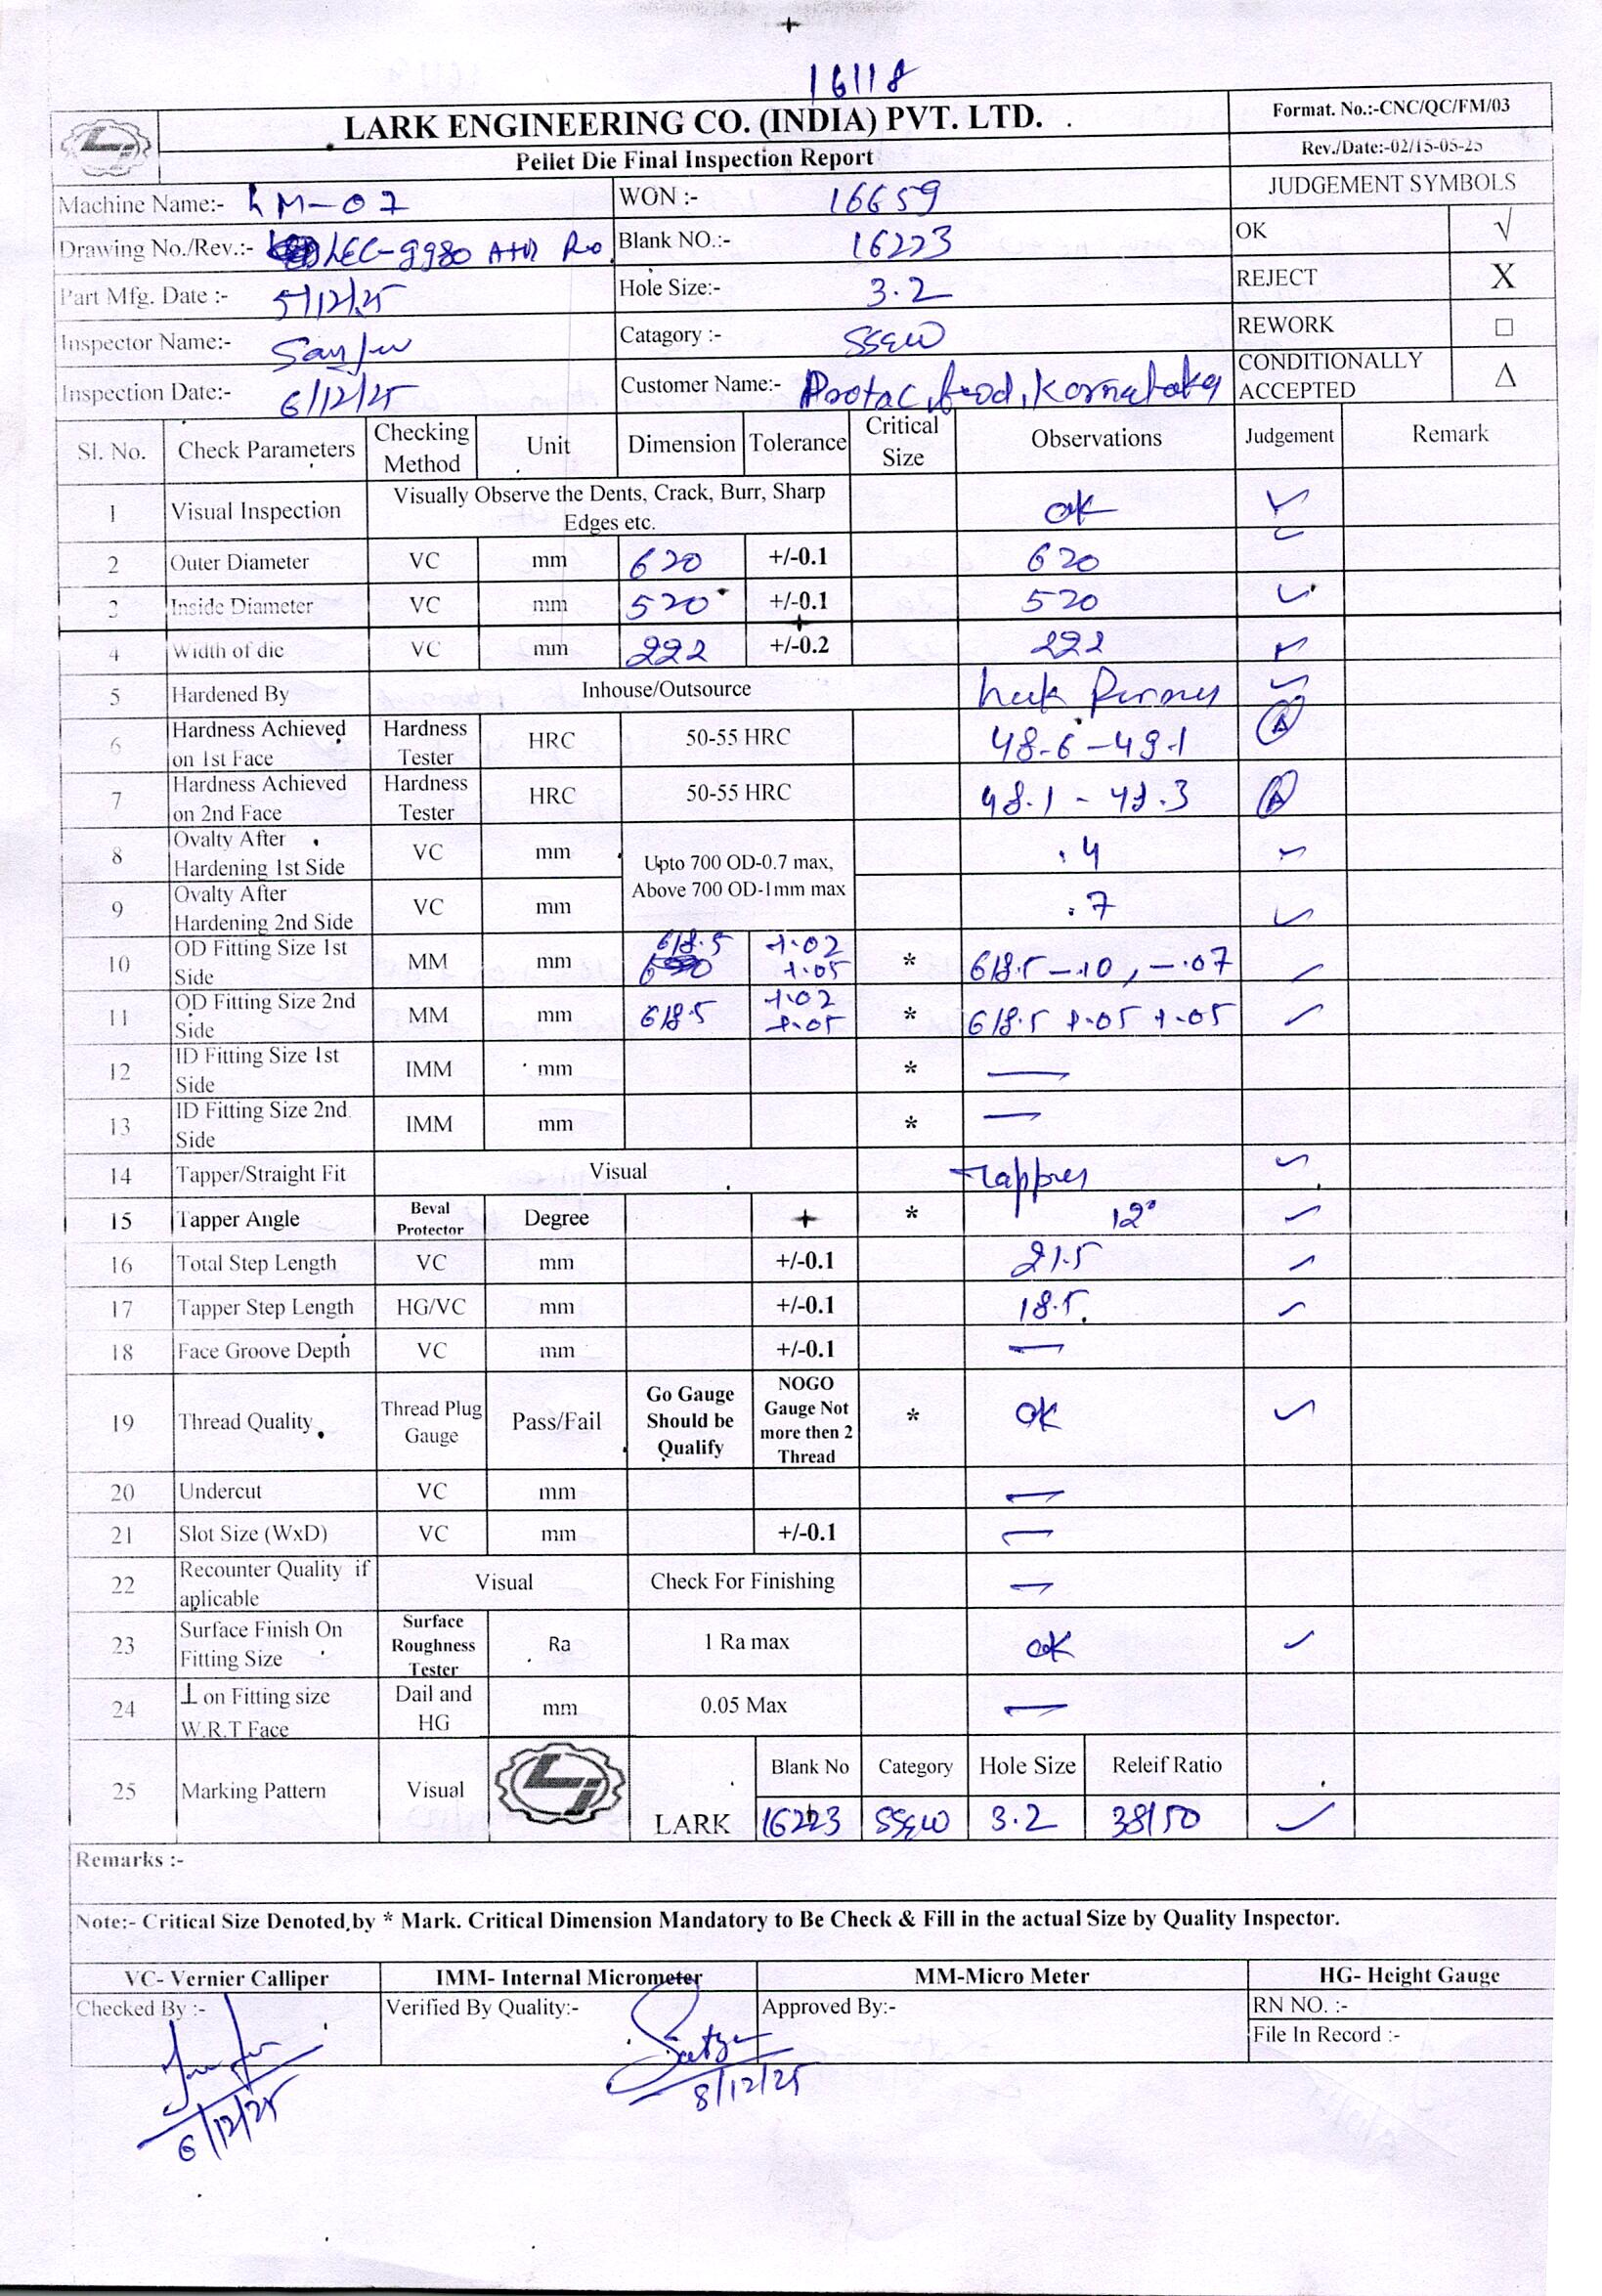 16118
LARK ENGINEERING CO. (INDIA) PVT. LTD.
Format. No.:-CNC/QC/FM/03
Pellet Die Final Inspection Report
Rev./Date:-02/15-05-25
Machine Name:- LM-07 WON :- 16659 JUDGEMENT SYMBOLS
Drawing No./Rev.:- LEC-9980 Blank NO.:- 16223 OK √
Part Mfg. Date :- 5/12/25 Hole Size:- 3.2 REJECT X
Inspector Name:- Sanju Catagory :- SSEW REWORK □
Inspection Date:- 6/12/25 Customer Name:- food, Karnataka CONDITIONALLY ACCEPTED Δ
Sl. No. Check Parameters Checking Method Unit Dimension Tolerance Critical Size Observations Judgement Remark
1 Visual Inspection Visually Observe the Dents, Crack, Burr, Sharp Edges etc. ok ✓
2 Outer Diameter VC mm 620 +/-0.1 620 ✓
3 Inside Diameter VC mm 520 +/-0.1 520 ✓
4 Width of die VC mm 222 +/-0.2 222 ✓
5 Hardened By Inhouse/Outsource ✓
6 Hardness Achieved on 1st Face Hardness Tester HRC 50-55 HRC 48.6-49.1
7 Hardness Achieved on 2nd Face Hardness Tester HRC 50-55 HRC
8 Ovalty After Hardening 1st Side VC mm Upto 700 OD-0.7 max, Above 700 OD-1mm max .4 ✓
9 Ovalty After Hardening 2nd Side VC mm .7 ✓
10 OD Fitting Size 1st Side MM mm 618.5 +.02 +.05 * 618.5 -.10, -.07 ✓
11 OD Fitting Size 2nd Side MM mm 618.5 +.02 +.05 * 618.5 +.05 +.05 ✓
12 ID Fitting Size 1st Side IMM mm * —
13 ID Fitting Size 2nd Side IMM mm * —
14 Tapper/Straight Fit Visual Tapper ✓
15 Tapper Angle Beval Protector Degree * 12° ✓
16 Total Step Length VC mm +/-0.1 21.5 ✓
17 Tapper Step Length HG/VC mm +/-0.1 18.5 ✓
18 Face Groove Depth VC mm +/-0.1 —
19 Thread Quality Thread Plug Gauge Pass/Fail Go Gauge Should be Qualify NOGO Gauge Not more then 2 Thread * ok ✓
20 Undercut VC mm —
21 Slot Size (WxD) VC mm +/-0.1 —
22 Recounter Quality if aplicable Visual Check For Finishing —
23 Surface Finish On Fitting Size Surface Roughness Tester Ra 1 Ra max ok ✓
24 ⊥ on Fitting size W.R.T Face Dail and HG mm 0.05 Max —
25 Marking Pattern Visual LARK Blank No Category Hole Size Releif Ratio
16223 SSEW 3.2 38/50 ✓
Remarks :-
Note:- Critical Size Denoted by * Mark. Critical Dimension Mandatory to Be Check & Fill in the actual Size by Quality Inspector.
VC- Vernier Calliper IMM- Internal Micrometer MM-Micro Meter HG- Height Gauge
Checked By :- Verified By Quality:- Approved By:- RN NO. :-
File In Record :-
6/12/25 8/12/25